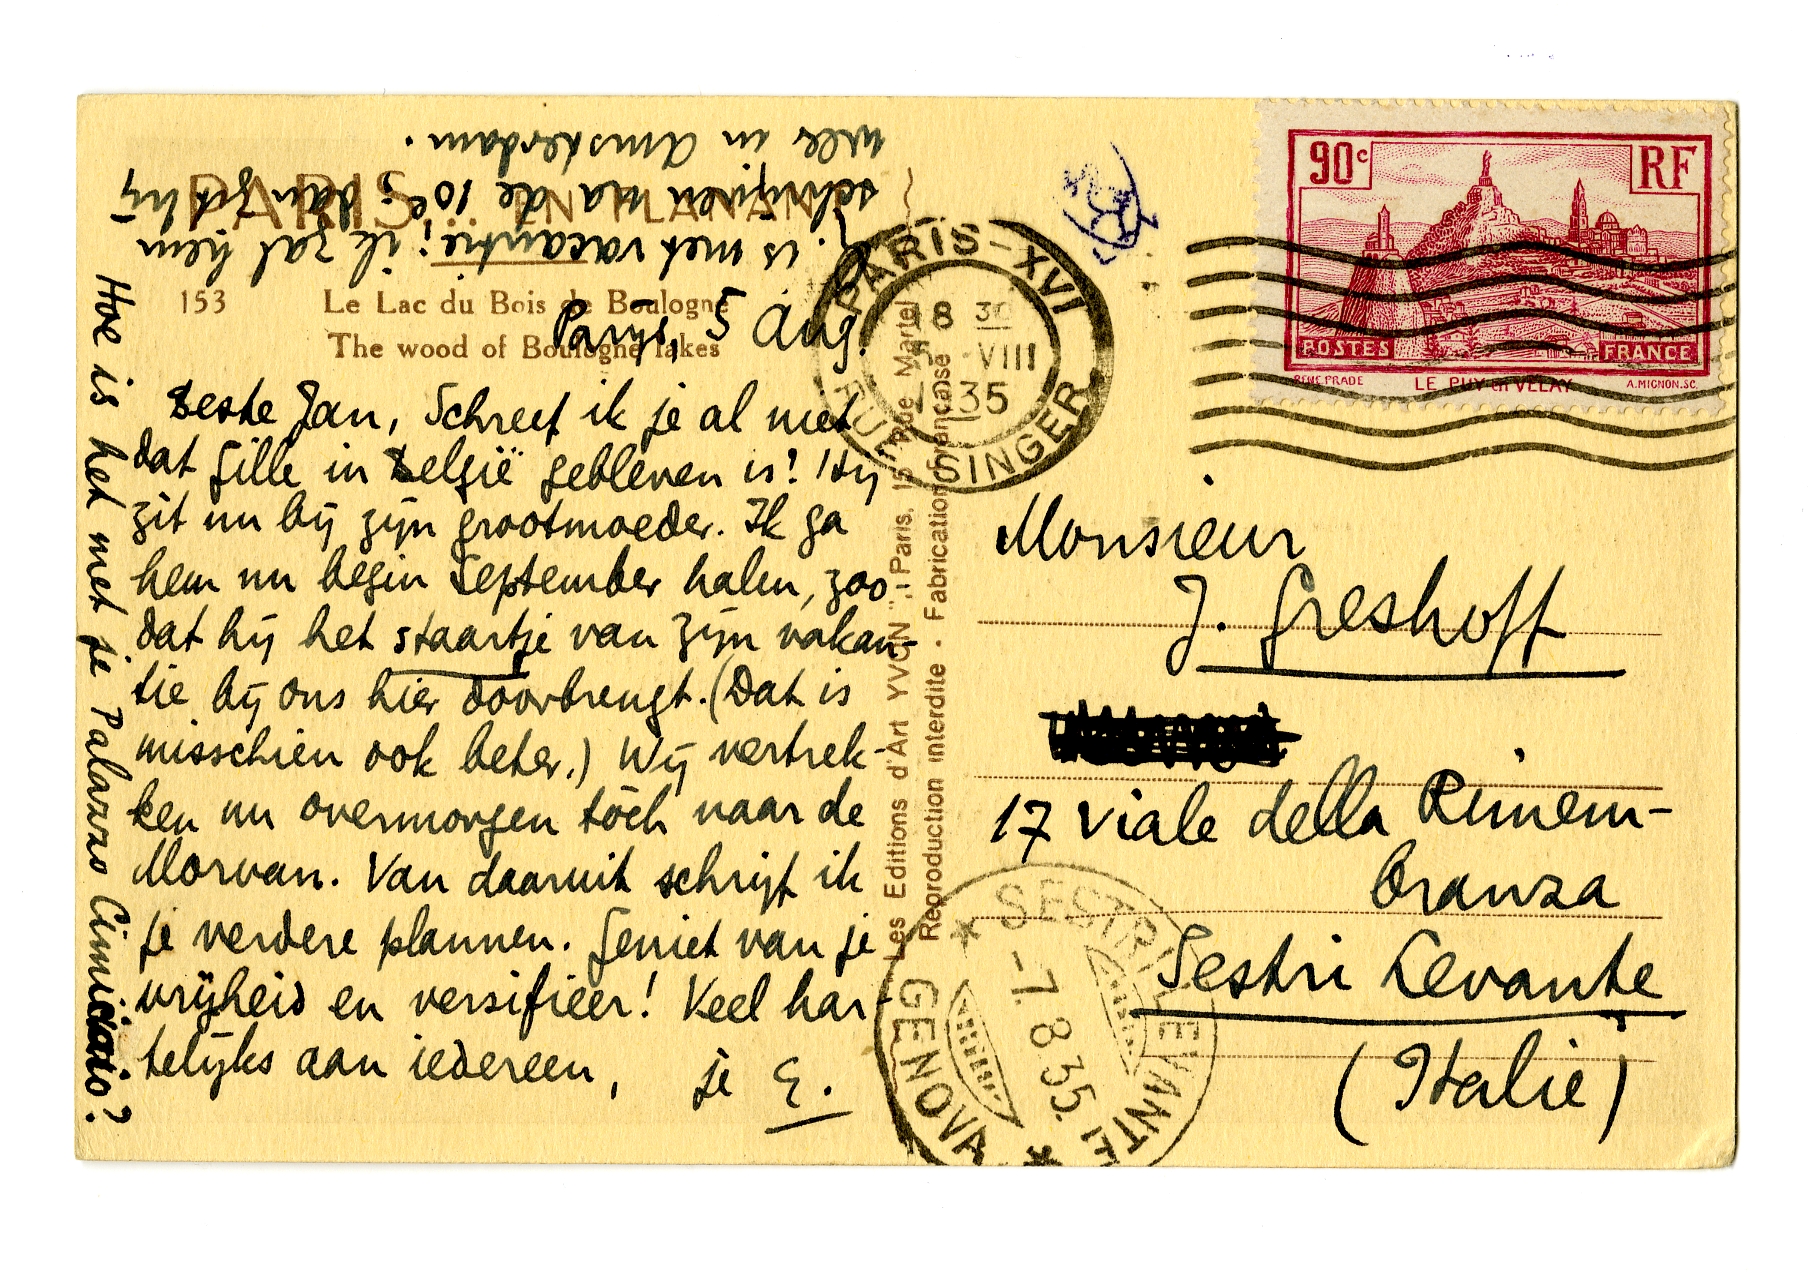 PARIS... EN FLANANT
153 Le Lac du Bois de Boulogne
The wood of Boulogne lakes
Parijs, 5 Aug.
Beste Jan, Schreef ik je al niet
dat Gille in België gebleven is? Hij
zit nu bij zijn grootmoeder. Ik ga
hem nu begin September halen, zoo-
dat hij het staartje van zijn vakan-
tie bij ons hier doorbrengt. (Dat is
misschien ook beter.) Wij vertrek-
ken nu overmorgen tòch naar de
Morvan. Van daaruit schrijf ik
je verdere plannen. Geniet van je
vrijheid en versifieer! Veel har-
telijks aan iedereen, je E.
Hoe is het met je Palazzo Cimiciaio?
is met vacantie; ik zal hem
schrijven na de 10e, dan zit hij
wee in Amsterdam.
Les Editions d'Art YVON", Paris, 15, rue Martel
Reproduction interdite - Fabrication française
PARIS - XVI
18 30
VIII
35
RUE SINGER
90c RF
POSTES FRANCE
RENE PRADE LE PUY en VELAY A. MIGNON. SC.
Monsieur
J. Greshoff
17 Viale della Rimem-
branza
Sestri Levante
(Italie)
SESTRI LEVANTE
-7.8.35.17
GENOVA